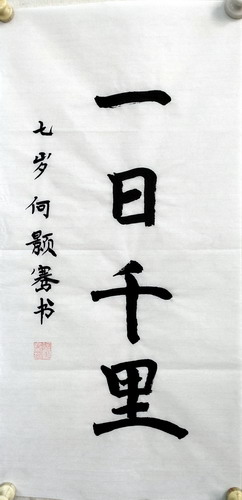 一日千里
七岁何颢骞书